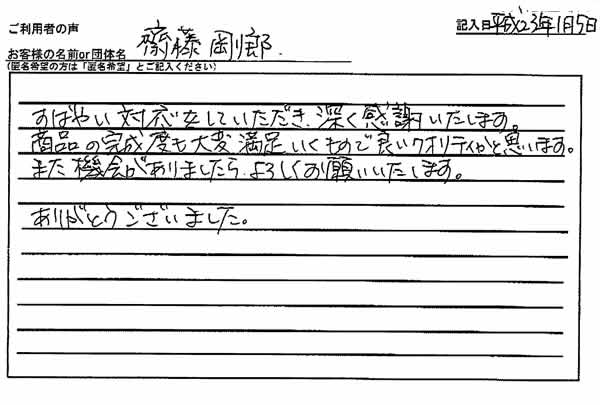 ご利用者の声
記入日 平成23年1月5日
お客様の名前or団体名 齋藤 剛郎
(匿名希望の方は「匿名希望」とご記入ください)
すばやい対応をしていただき、深く感謝いたします。
商品の完成度も大変満足いくもので良いクオリティかと思います。
また機会がありましたら、よろしくお願いいたします。
ありがとうございました。